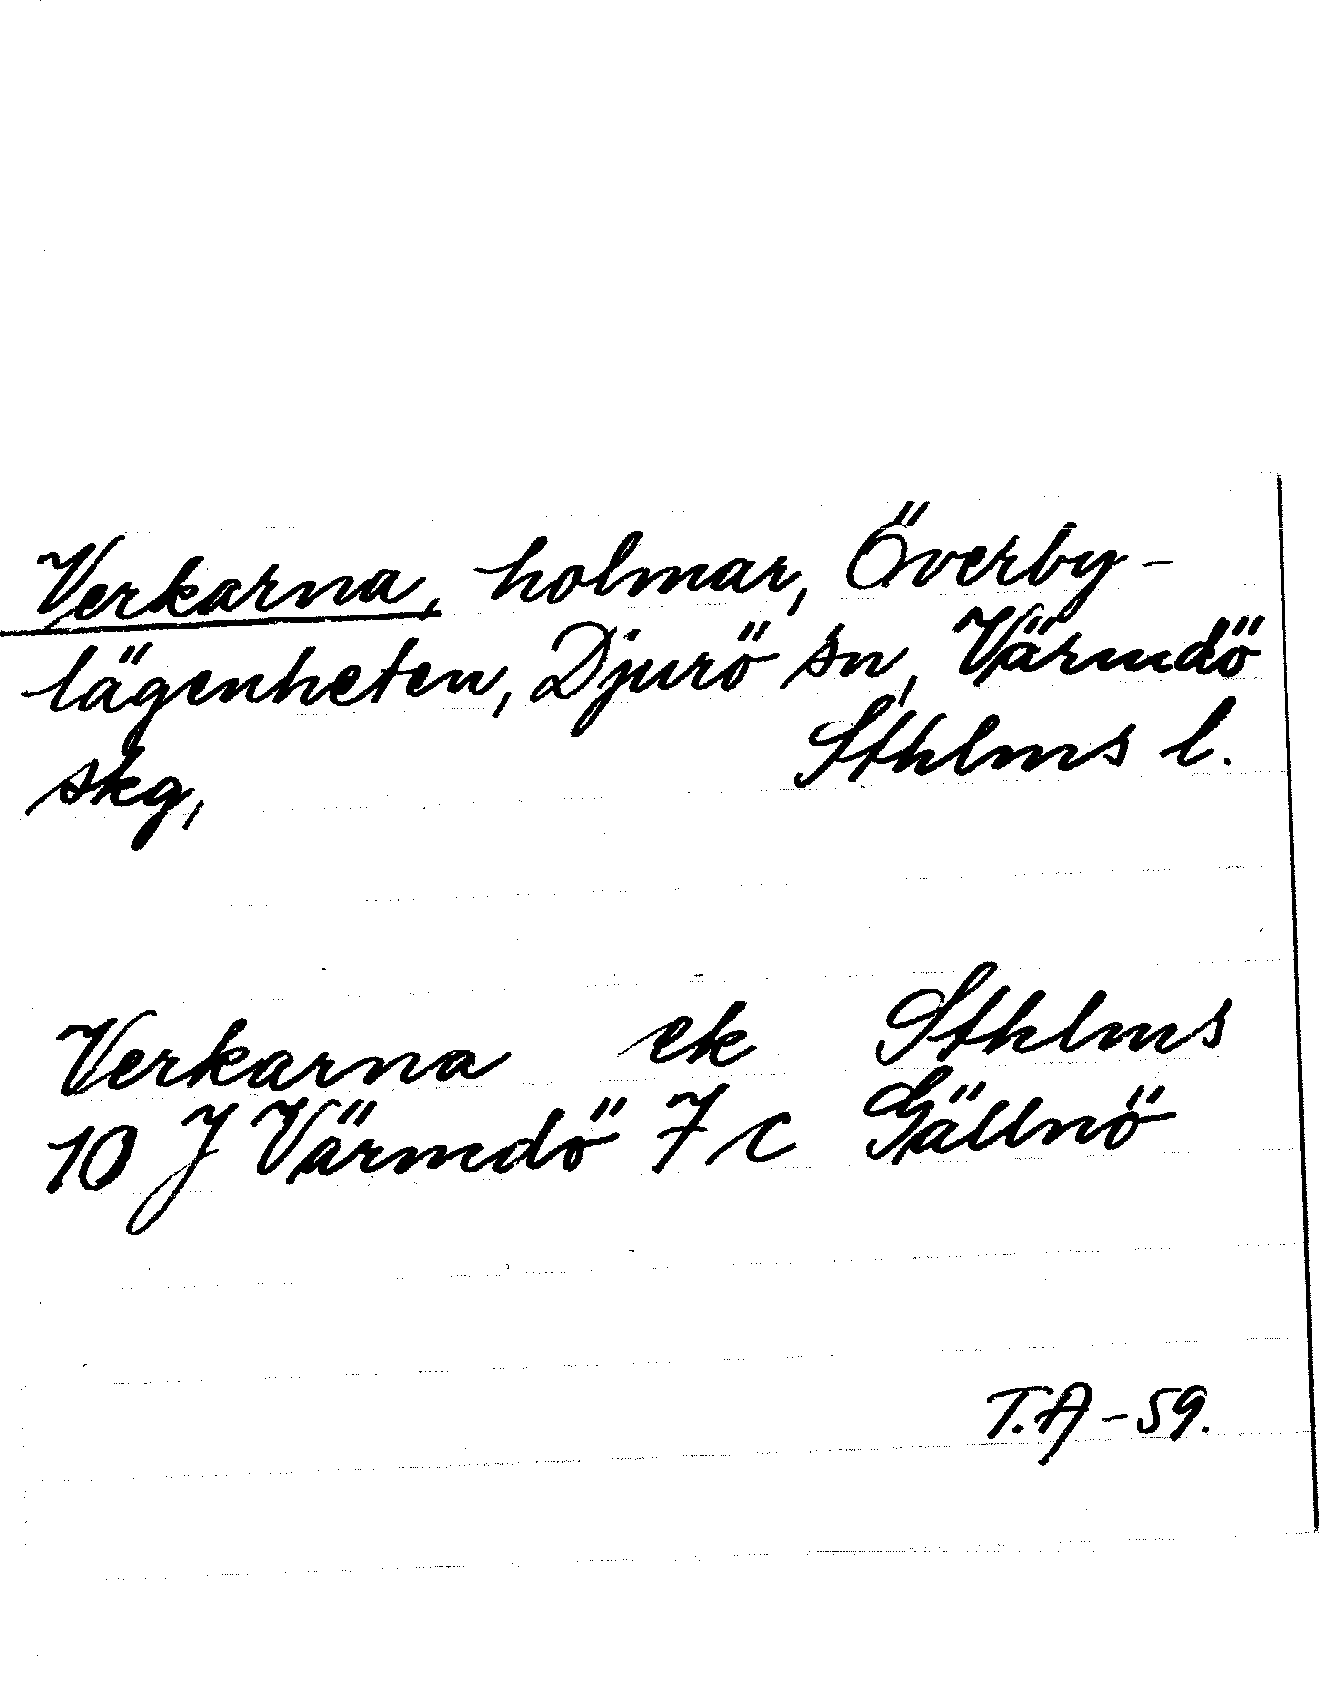 Verkarna, holmar, Överby-
lägenheten, Djurö sn, Värmdö
skg, Sthlms l.
Verkarna ek Sthlms
10 J Värmdö 7 c Gällnö
T.A -59.